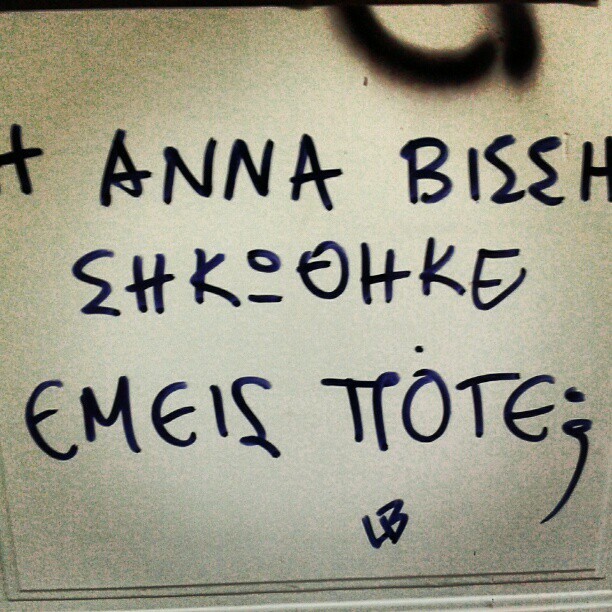 Η ΑΝΝΑ ΒΙΣΣΗ
ΣΗΚΩΘΗΚΕ
ΕΜΕΙΣ ΠΌΤΕ;
LB